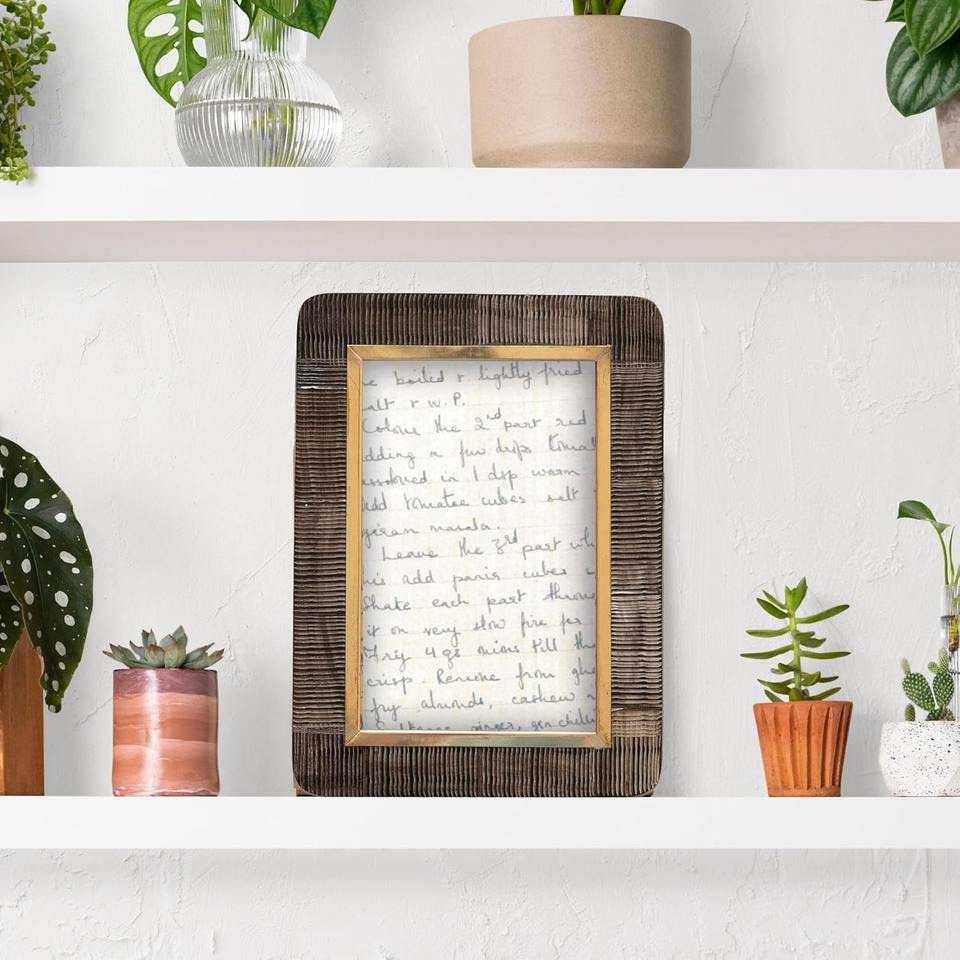 e boiled & lightly fried
alt & w.P.
Colour the 2nd part red
dding a few drops tomat
ssolved in 1 dsp warm
Add tomatoe cubes salt
garam masala.
Leave the 3rd part wh
his add panir cubes
Shake each part throu
it on very slow fire for
Fry 4 gs mins till th
crisp. Remove from ghe
fry almonds, cashew n
ginger, grn chilli